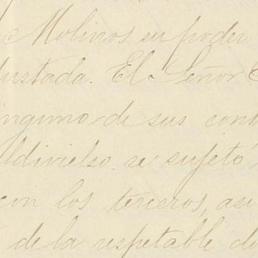 Molinos en poder
ustada. El Señor
inguno de sus cont
ldivielso se sujetó
con los terceros, asi
de la respetable